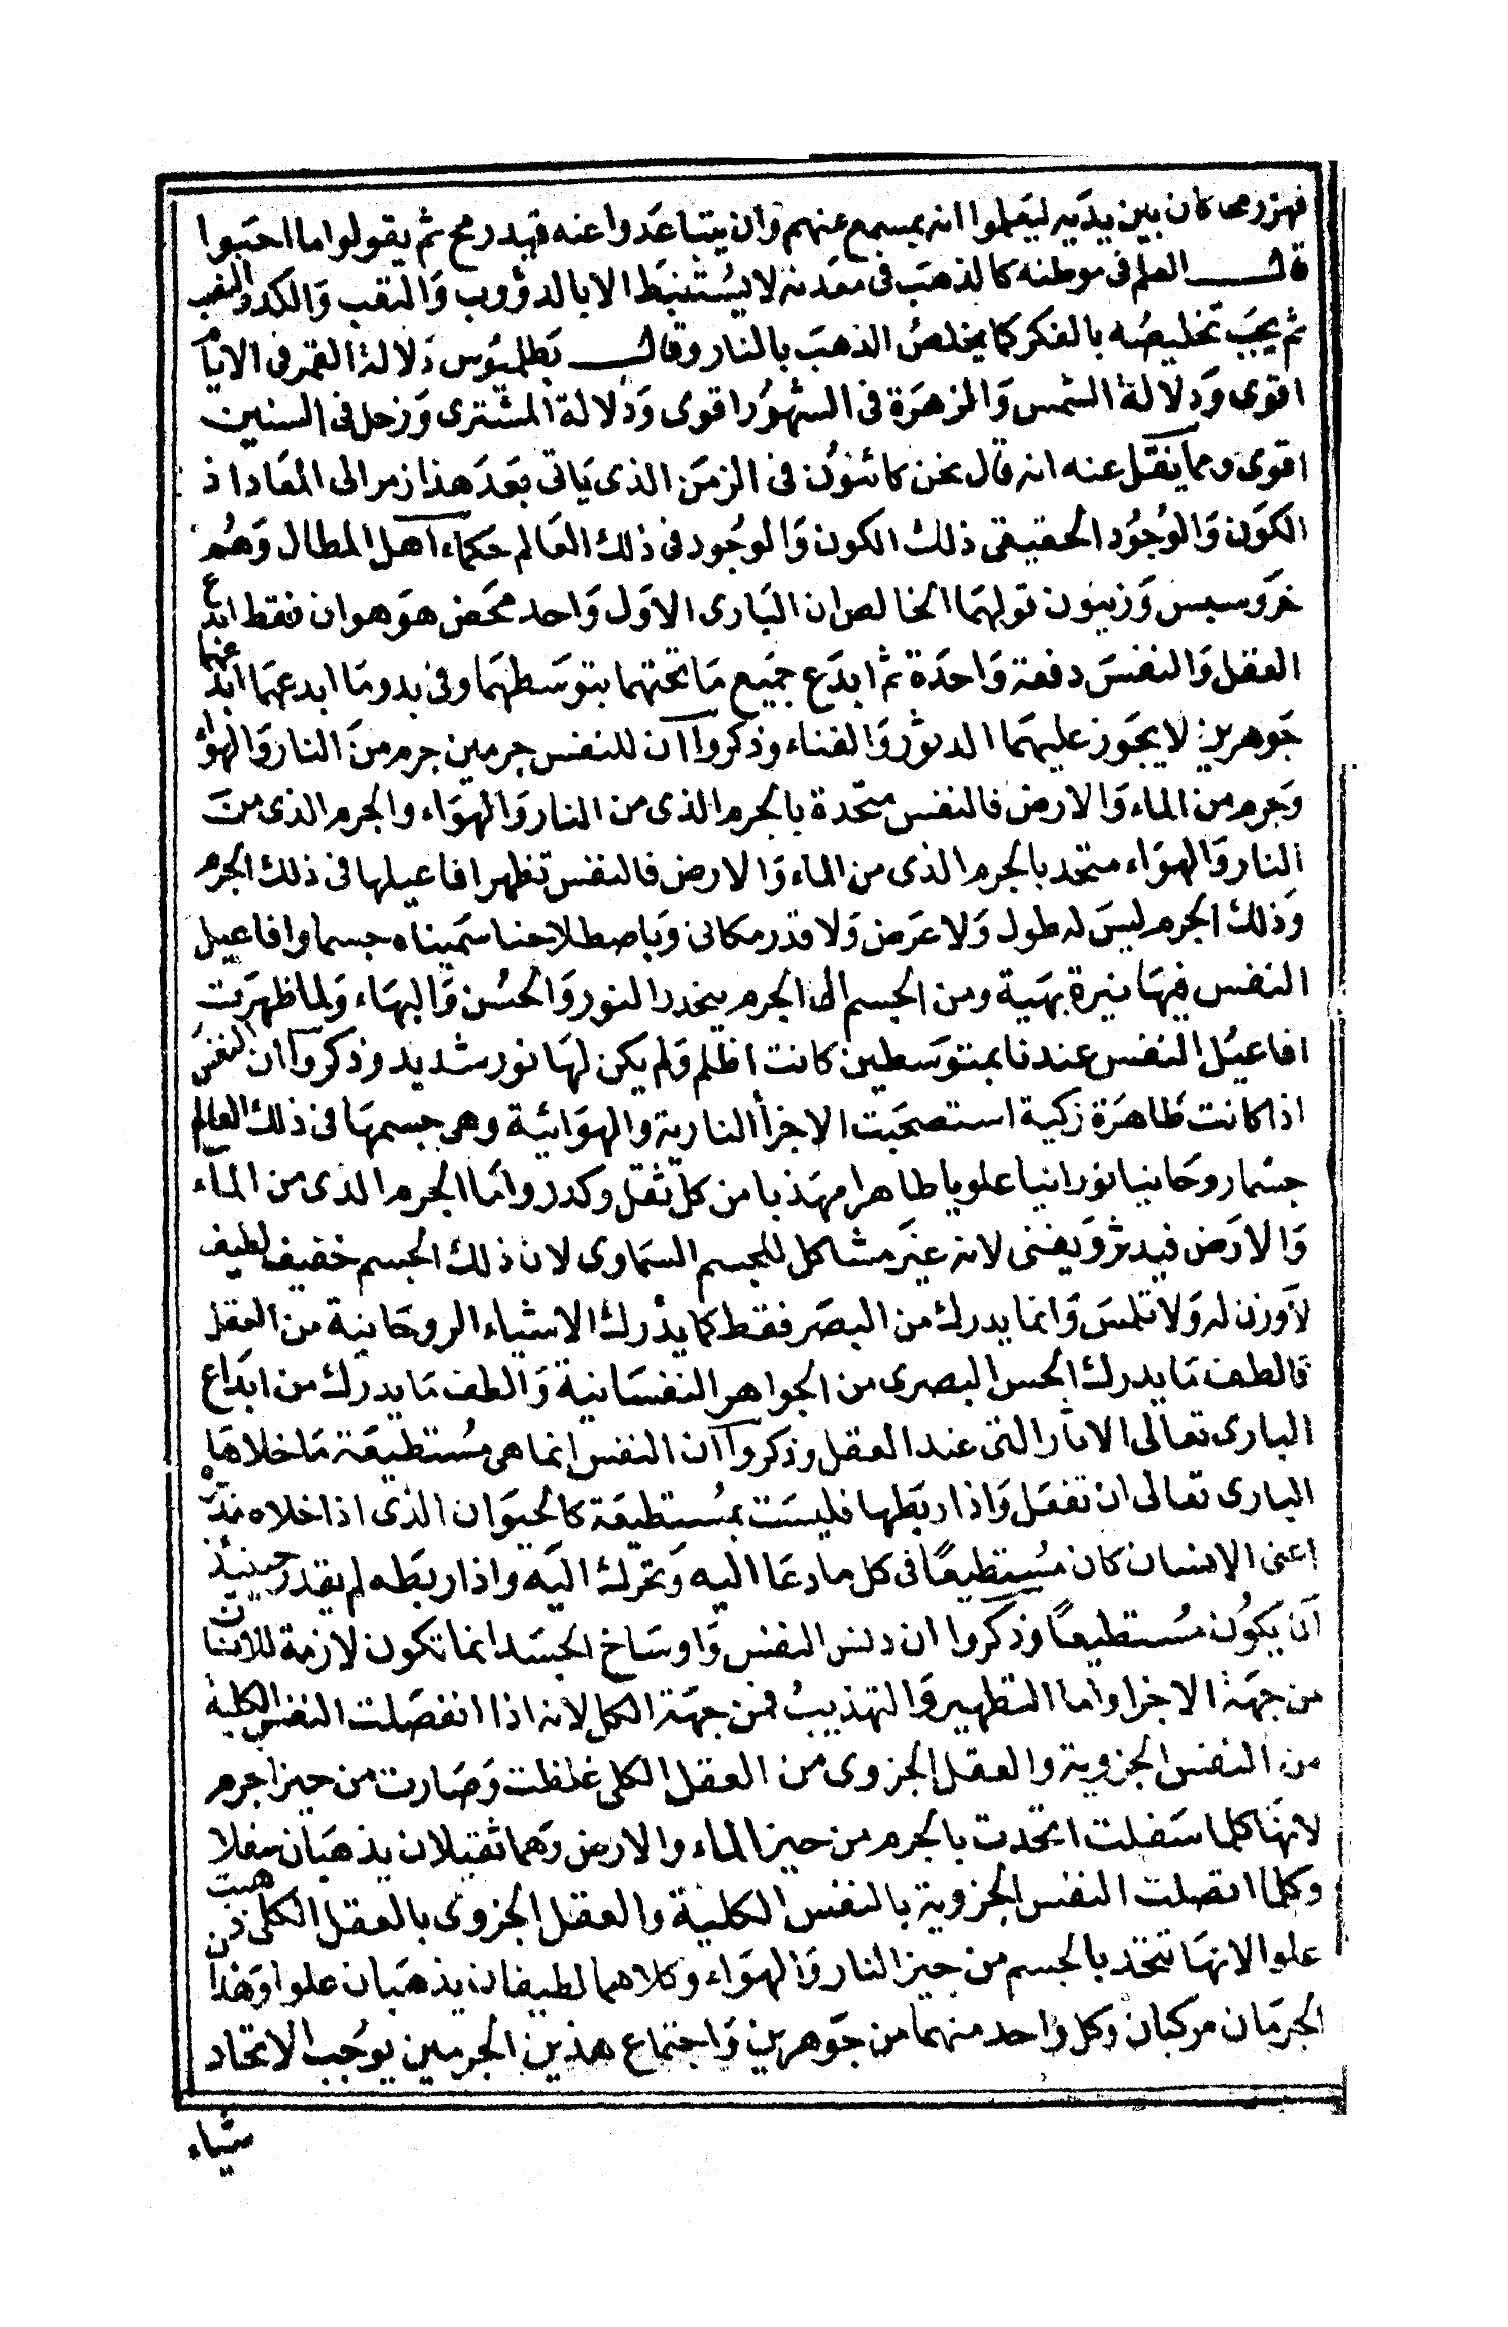 فهز رمحا كان بين يديه ليعلموا انه بمسمع عنهم وان يتباعدوا عنه قيد رمح ثم يقولوا ما احبوا
قال العلم فى موطنه كالذهب فى معدنه لا يستنبط الا بالدؤوب والتعب والكد والنصب
ثم يجب تخليصه بالفكر كما يخلص الذهب بالنار وقال بطلميوس دلالة القمر فى الايام
اقوى ودلالة الشمس والزهرة فى الشهور اقوى ودلالة المشترى وزحل فى السنين
اقوى ومما ينقل عنه انه قال نحن كائنون فى الزمن الذى ياتى بعد هذا زمر الى المعاد اذ
الكون والوجود الحقيقى ذلك الكون والوجود فى ذلك العالم حكماء اهل المطال وهم
خروسيس وزينون قولهما الخالص ان البارى الاول واحد محض هو هو ان فقط ابدع
العقل والنفس دفعة واحدة ثم ابدع جميع ما تحتهما بتوسطهما وفى بدو ما ابدعهما ابدعهما
جوهرين لا يجوز عليهما الدثور والفناء وذكروا ان للنفس جرمين جرم من النار والهواء
وجرم من الماء والارض فالنفس متحدة بالجرم الذى من النار والهواء والجرم الذى من
النار والهواء متحد بالجرم الذى من الماء والارض فالنفس تظهر افاعيلها فى ذلك الجرم
وذلك الجرم ليس له طول ولا عرض ولا قدر مكانى وباصطلاحنا سميناه جسما وافاعيل
النفس فيها نيرة بهية ومن الجسم الى الجرم ينحدر النور والحسن والبهاء ولما ظهرت
افاعيل النفس عندنا بمتوسطين كانت اظلم ولم يكن لها نور شديد وذكروا ان النفس
اذا كانت طاهرة زكية استصحبت الاجزأ النارية والهوائية وهى جسمها فى ذلك العالم
جسما روحانيا نورانيا علويا طاهرا مهذبا من كل ثقل وكدر واما الجرم الذى من الماء
والارض فيدثر ويفنى لانه غير مشاكل للجسم السماوى لان ذلك الجسم خفيف لطيف
لا وزن له ولا تلمس وانما يدرك من البصر فقط كما يدرك الاشياء الروحانية من العقل
فالطف ما يدرك الحس البصرى من الجواهر النفسانية والطف ما يدرك من ابداع
البارى تعالى الاثار التى عند العقل وذكروا ان النفس انما هى مستطيعة ما خلاها
البارى تعالى ان تفعل واذا ربطها فليست بمستطيعة كالحيوان الذى اذا خلاه مدبره
اعنى الانسان كان مستطيعا فى كل ما دعا اليه وتحرك اليه واذا ربطه لم يقدر حينيذ
ان يكون مستطيعا وذكروا ان دنس النفس واوساخ الجسد انما تكون لازمة للانسان
من جهة الاجزا واما التطهير والتهذيب فمن جهة الكل لانه اذا انفصلت النفس الكلية
من النفس الجزوية والعقل الجزوى من العقل الكلى غلظت وصارت من حيز اجرم
لانها كلما سفلت اتحدت بالجرم من حيز الماء والارض وهما ثقيلان يذهبان سفلا
وكلما اتصلت النفس الجزوية بالنفس الكلية والعقل الجزوى بالعقل الكلى ذهبت
علوا لانها تتحد بالجسم من حيز النار والهواء وكلاهما لطيفان يذهبان علوا وهذان
الجرمان مركبان وكل واحد منهما من جوهرين واجتماع هذين الجرمين يوجب الاتحاد
شياء